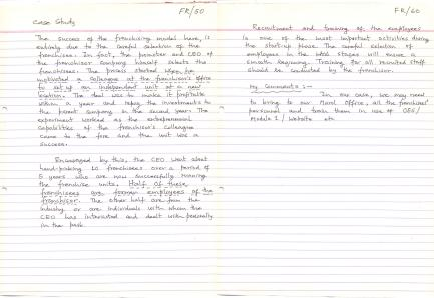 FR/50
Case Study
The success of the franchising model here, is
entirely due to the careful selection of the
franchisees. In fact, the promoter and CEO of
the franchisor Company himself selects the
franchisees. The process started when he
motivated a colleague at the franchisor's office
to set up an independent unit at a new
location. The idea was to make it profitable
within a year and repay the investments to
the parent company in the second year. The
experiment worked as the entrepreneurial
capabilities of the franchisor's colleague
came to the fore and the unit was a
success.
Encouraged by this, the CEO went about
hand-picking 20 franchisees over a period of
5 years who are now successfully running
the franchise units. Half of these
franchisees are former employees of the
franchisor. The other half are from the
industry or are individuals with whom the
CEO has interacted and dealt with personally
in the past.
FR/60
Recruitment and training of the employees
is one of the most important activities during
the start-up phase. The careful selection of
employees in the initial stages will ensure a
smooth beginning. Training for all recruited staff
should be conducted by the franchisor.
My Comments :-
In our case, we may need
to bring to our Head Office, all the franchisees'
personnel and train them in use of
Module 1 / Website etc